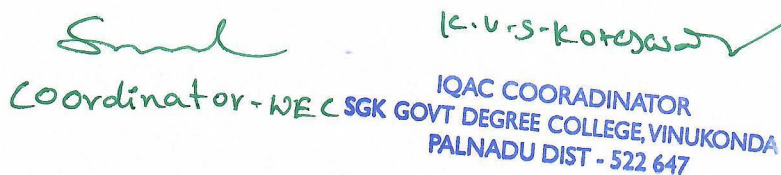 K.V.S. Koteswara
Coordinator - WEC
IQAC COORADINATOR
SGK GOVT DEGREE COLLEGE, VINUKONDA
PALNADU DIST - 522 647